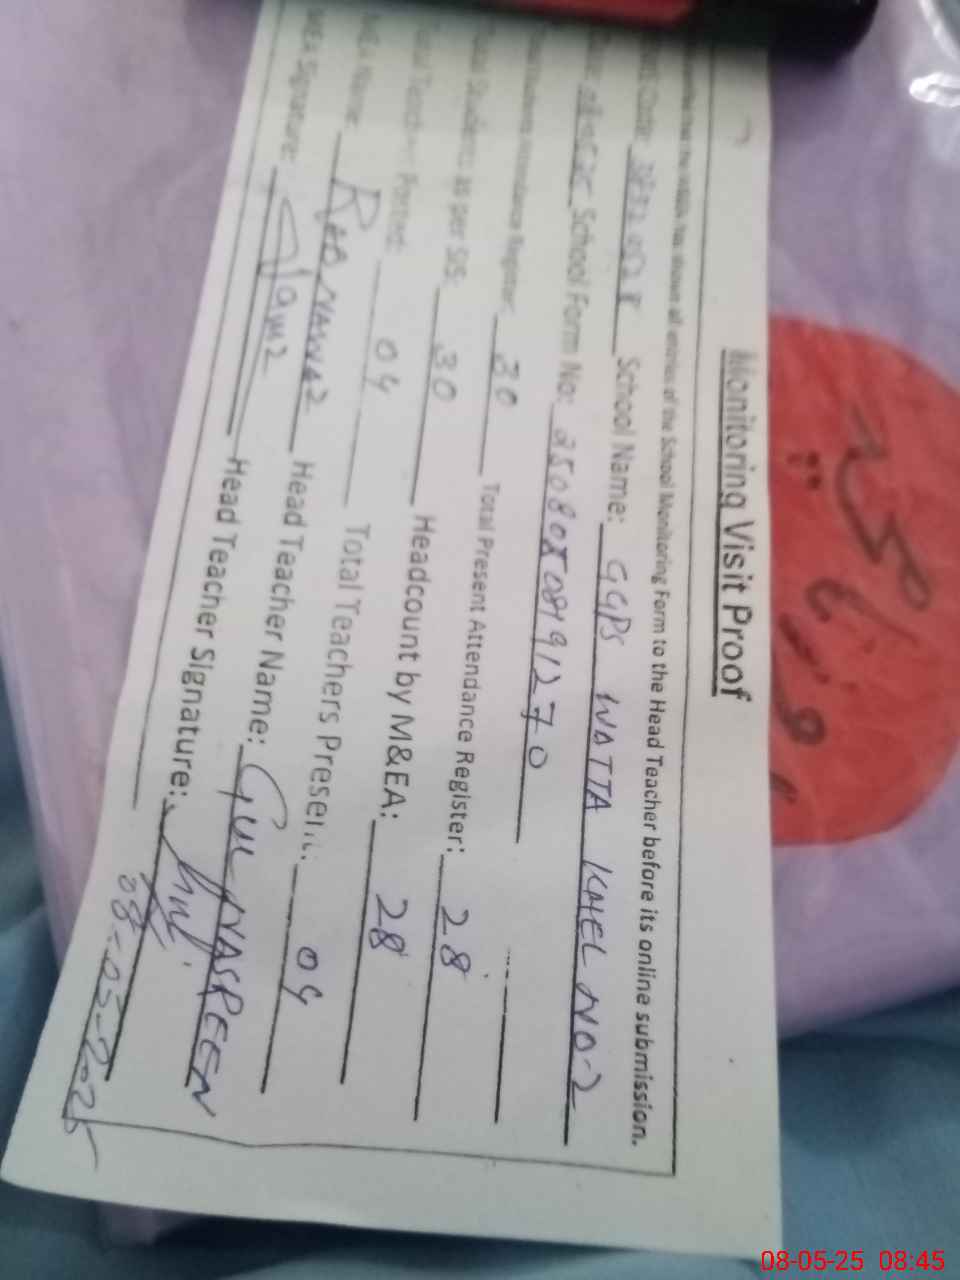 Monitoring Visit Proof
has shown all entries of the School Monitoring Form to the Head Teacher before its online submission.
Code: School Name: GGPS WATTA KHEL NO-2
School Form No:
Attendance Register: 30 Total Present Attendance Register: 28
Total Students as per SIS: 30 Headcount by M&EA: 28
Total Teachers Posted: 04 Total Teachers Present: 04
MEA Name: RAB NAWAZ Head Teacher Name: GUL NASREEN
MEA Signature: Head Teacher Signature:
08-05-2025
08-05-25 08:45